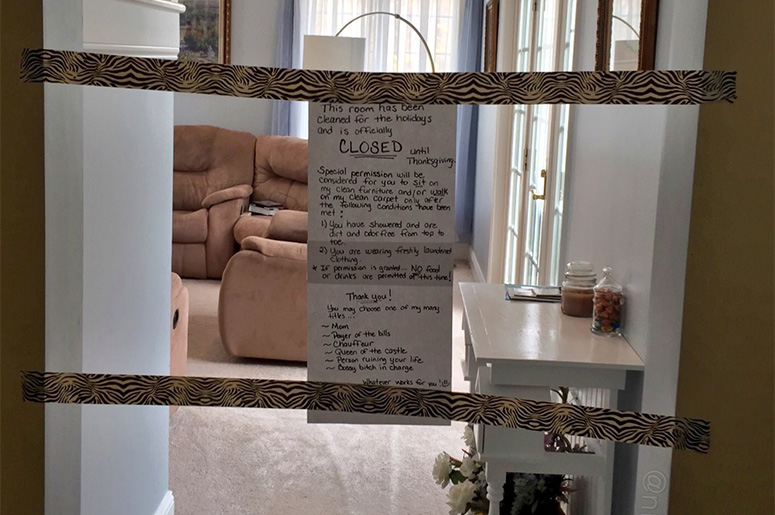 This room has been
cleaned for the holidays
and is officially
CLOSED until
Thanksgiving.
Special permission will be
considered for you to sit on
my clean furniture and/or walk
on my clean carpet only after
the following conditions have been
met:
1) You have showered and are
dirt and odor free from top to
toe.
2) You are wearing freshly laundered
clothing.
* If permission is granted... NO food
or drinks are permitted at this time!
Thank you!
You may choose one of my many
titles...
~ Mom
~ Payer of the bills
~ Chauffeur
~ Queen of the castle
~ Person ruining your life
~ Bossy bitch in charge
Whatever works for you!